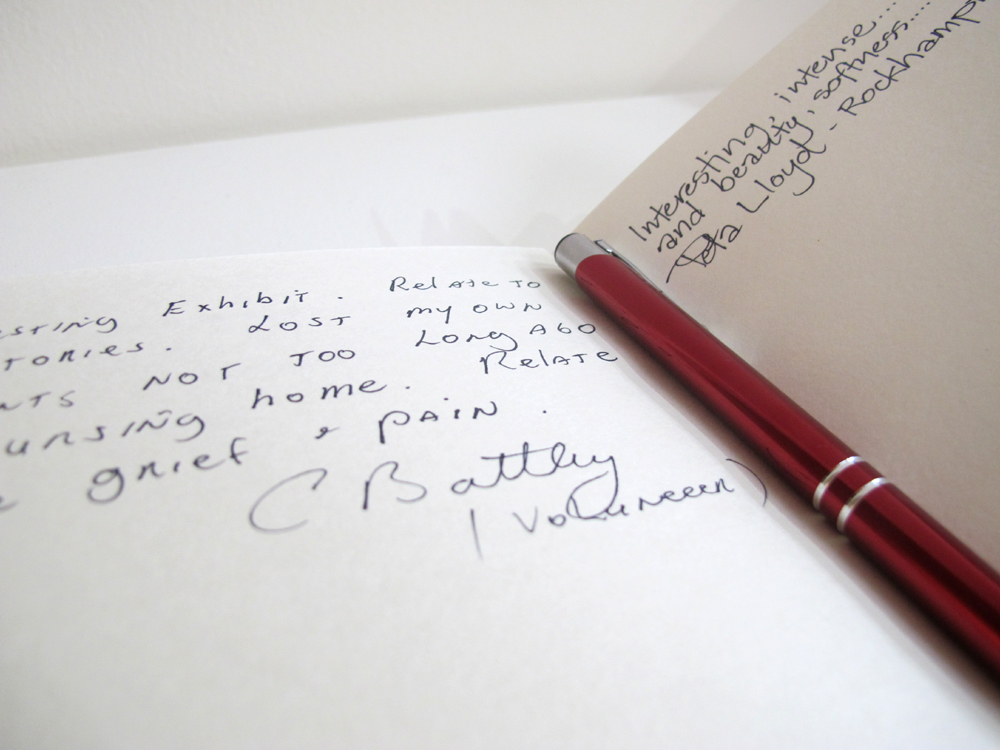 esting Exhibit. Relate to
tories. Lost my own
nts not too long ago
ursing home. Relate
e grief & pain.
C Battley
(Volunteer)
Interesting, intense....
and beauty, softness.....
Peta Lloyd - Rockhamp